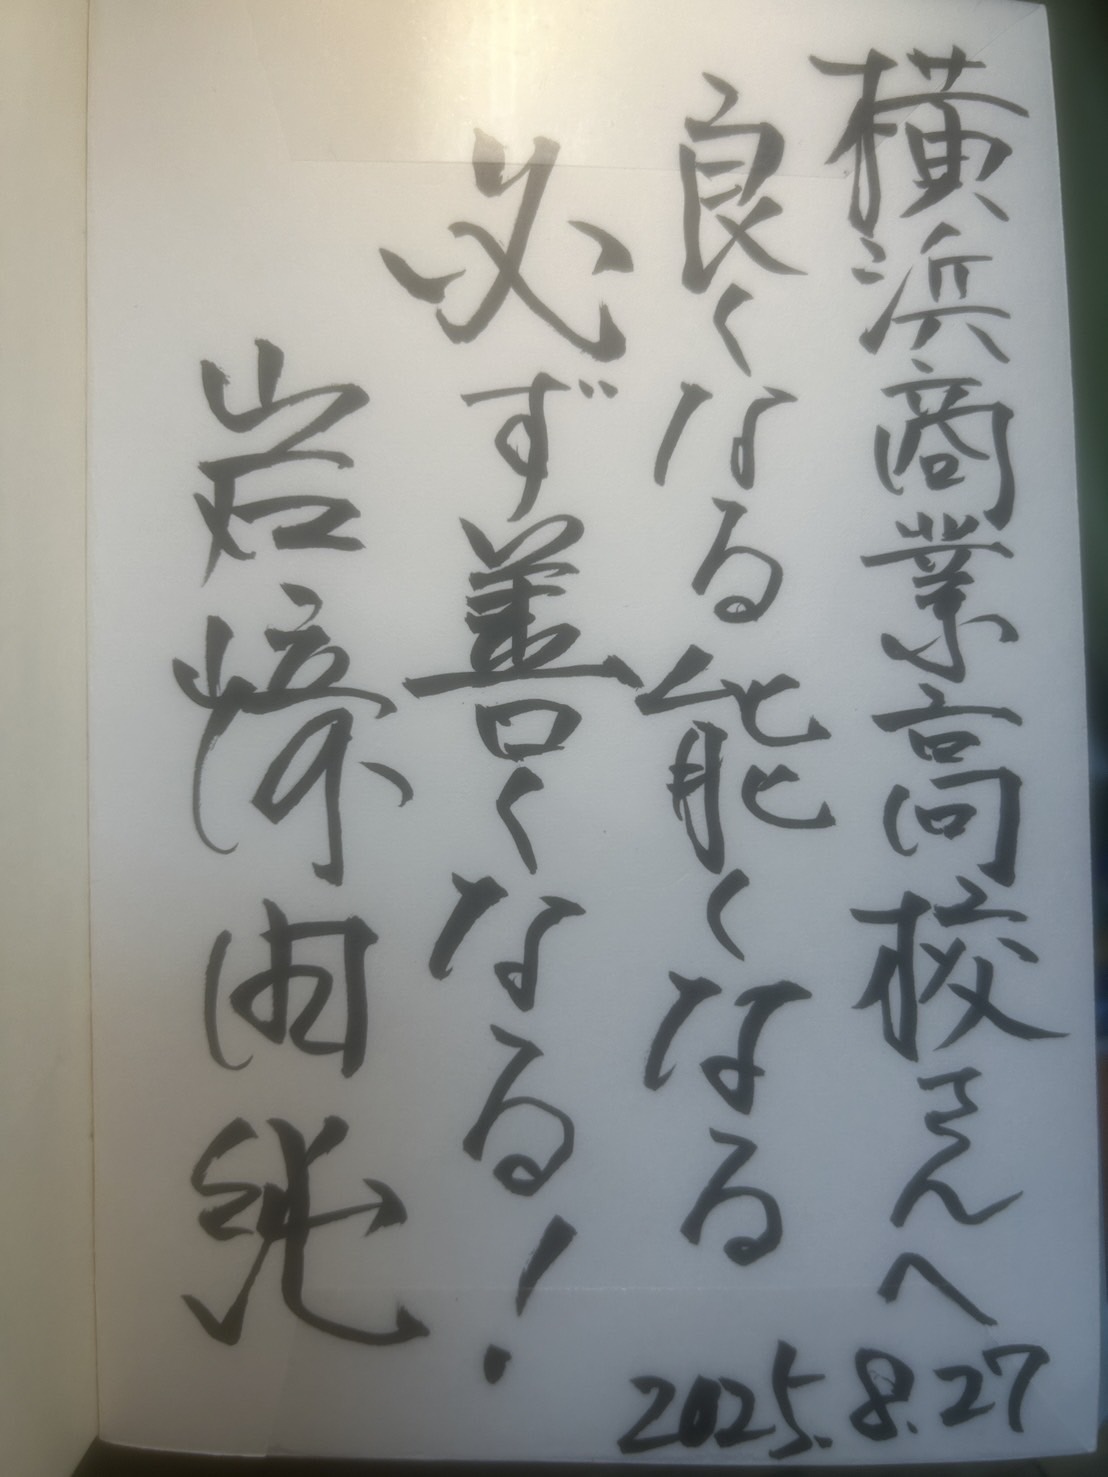 横浜商業高校さんへ
良くなる能くなる
必ず善くなる!
岩﨑由純
2025.8.27